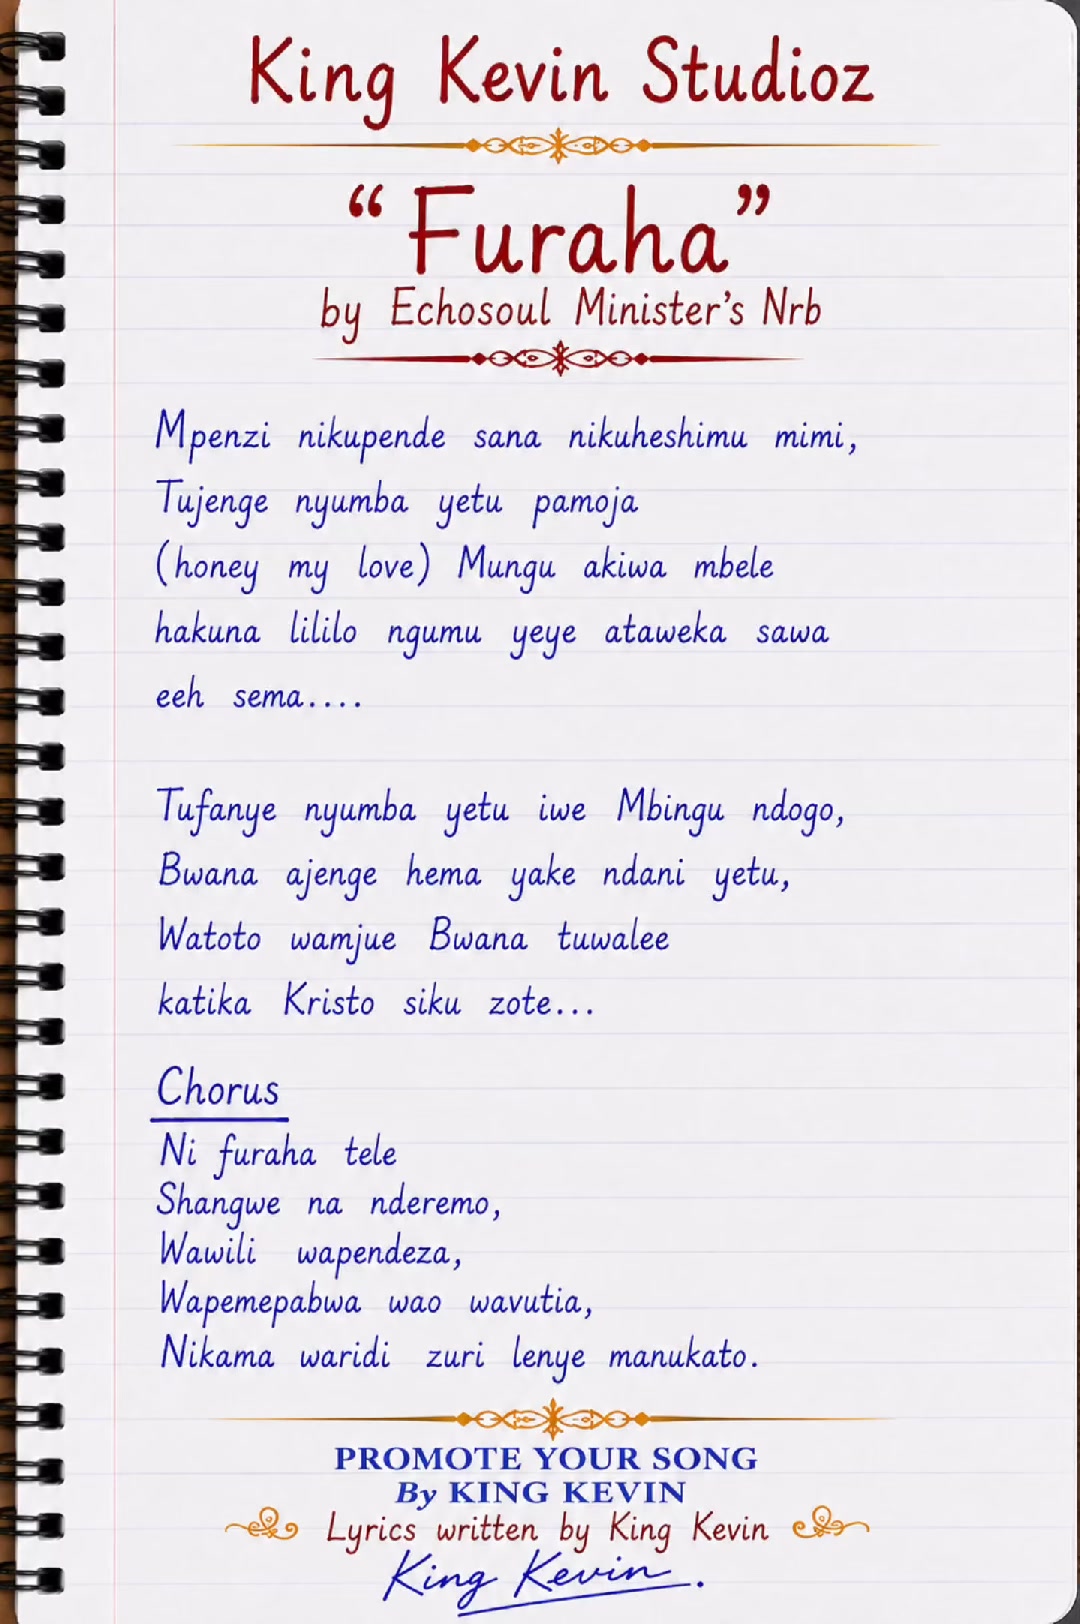 King Kevin Studioz
“Furaha”
by Echosoul Minister's Nrb
Mpenzi nikupende sana nikuheshimu mimi,
Tujenge nyumba yetu pamoja
(honey my love) Mungu akiwa mbele
hakuna lililo ngumu yeye ataweka sawa
eeh sema....
Tufanye nyumba yetu iwe Mbingu ndogo,
Bwana ajenge hema yake ndani yetu,
Watoto wamjue Bwana tuwalee
katika Kristo siku zote...
Chorus
Ni furaha tele
Shangwe na nderemo,
Wawili wapendeza,
Wapemepabwa wao wavutia,
Nikama waridi zuri lenye manukato.
PROMOTE YOUR SONG
By KING KEVIN
Lyrics written by King Kevin
King Kevin.